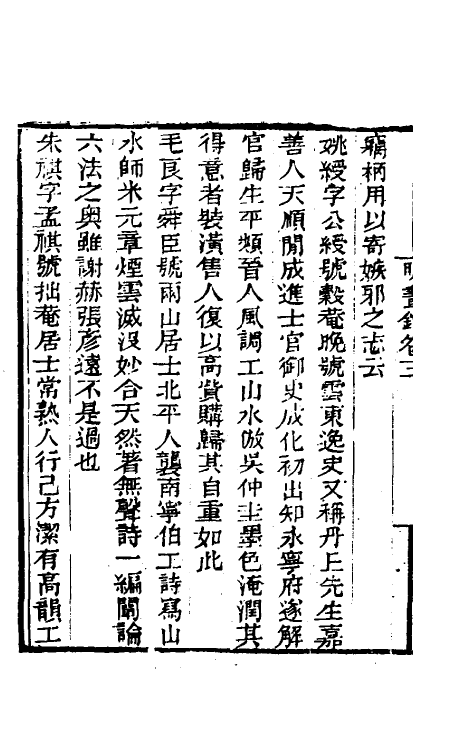 竊柄用以寄嫉邪之志云
姚綬字公綬號穀菴晚號雲東逸史又稱丹丘先生嘉
善人天順間成進士官御史成化初出知永寧府遂解
官歸生平類晉人風調工山水倣吳仲圭墨色淹潤其
得意者裝潢售人復以高貲購歸其自重如此
毛良字舜臣號雨山居士北平人襲南寧伯工詩寫山
水師米元章煙雲滅沒妙合天然著無聲詩一編闡論
六法之奧雖謝赫張彥遠不是過也
朱祺字孟祺號拙菴居士常熟人行己方潔有高韻工